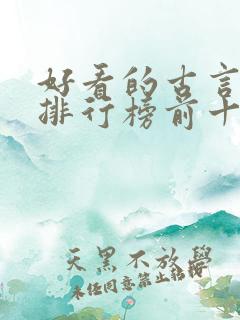 好看的古言
排行榜前十
天黑不放學
未经同意禁止转载